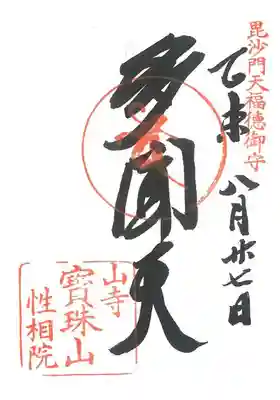 毘沙門天福徳御守
乙未 八月廿七日
多聞天
山寺
寳珠山
性相院